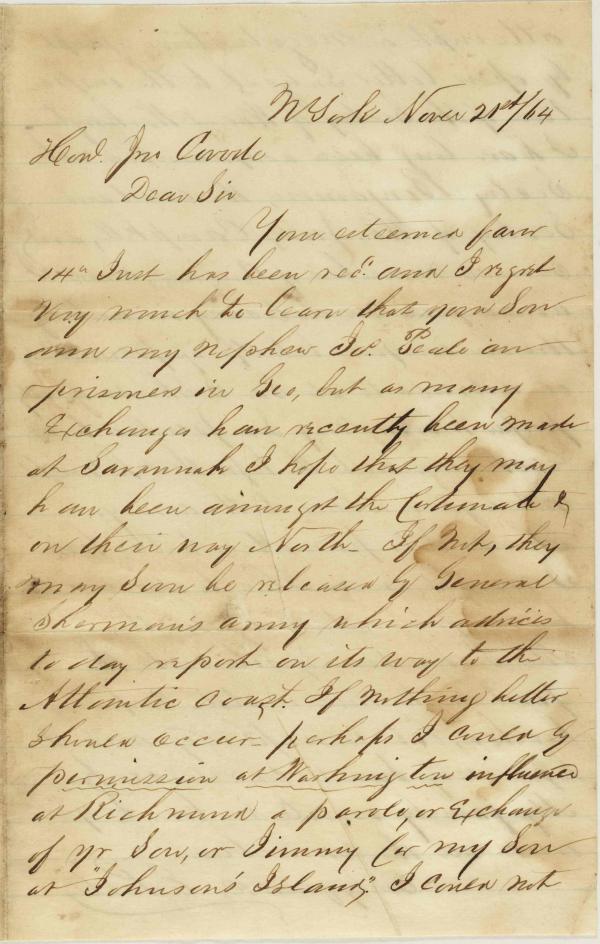 N York Nover 21st/64
Honl. Jno Covode
Dear Sir
Your esteemed favor
14th Inst has been recd. and I regret
very much to learn that your Son
and my nephew Jos. Peale are
prisoners in Geo, but as many
Exchanges have recently been made
at Savannah I hope that they may
have been amongst the fortunate &
on their way North - If not, they
may soon be released by General
Sherman's army which advices
to day report on its way to the
Atlantic coast. If nothing better
should occur - perhaps I could by
permission at Washington influence
at Richmond a parole, or Exchange
of yr Son, or Jimmy for my Son
at "Johnson's Island," I could not